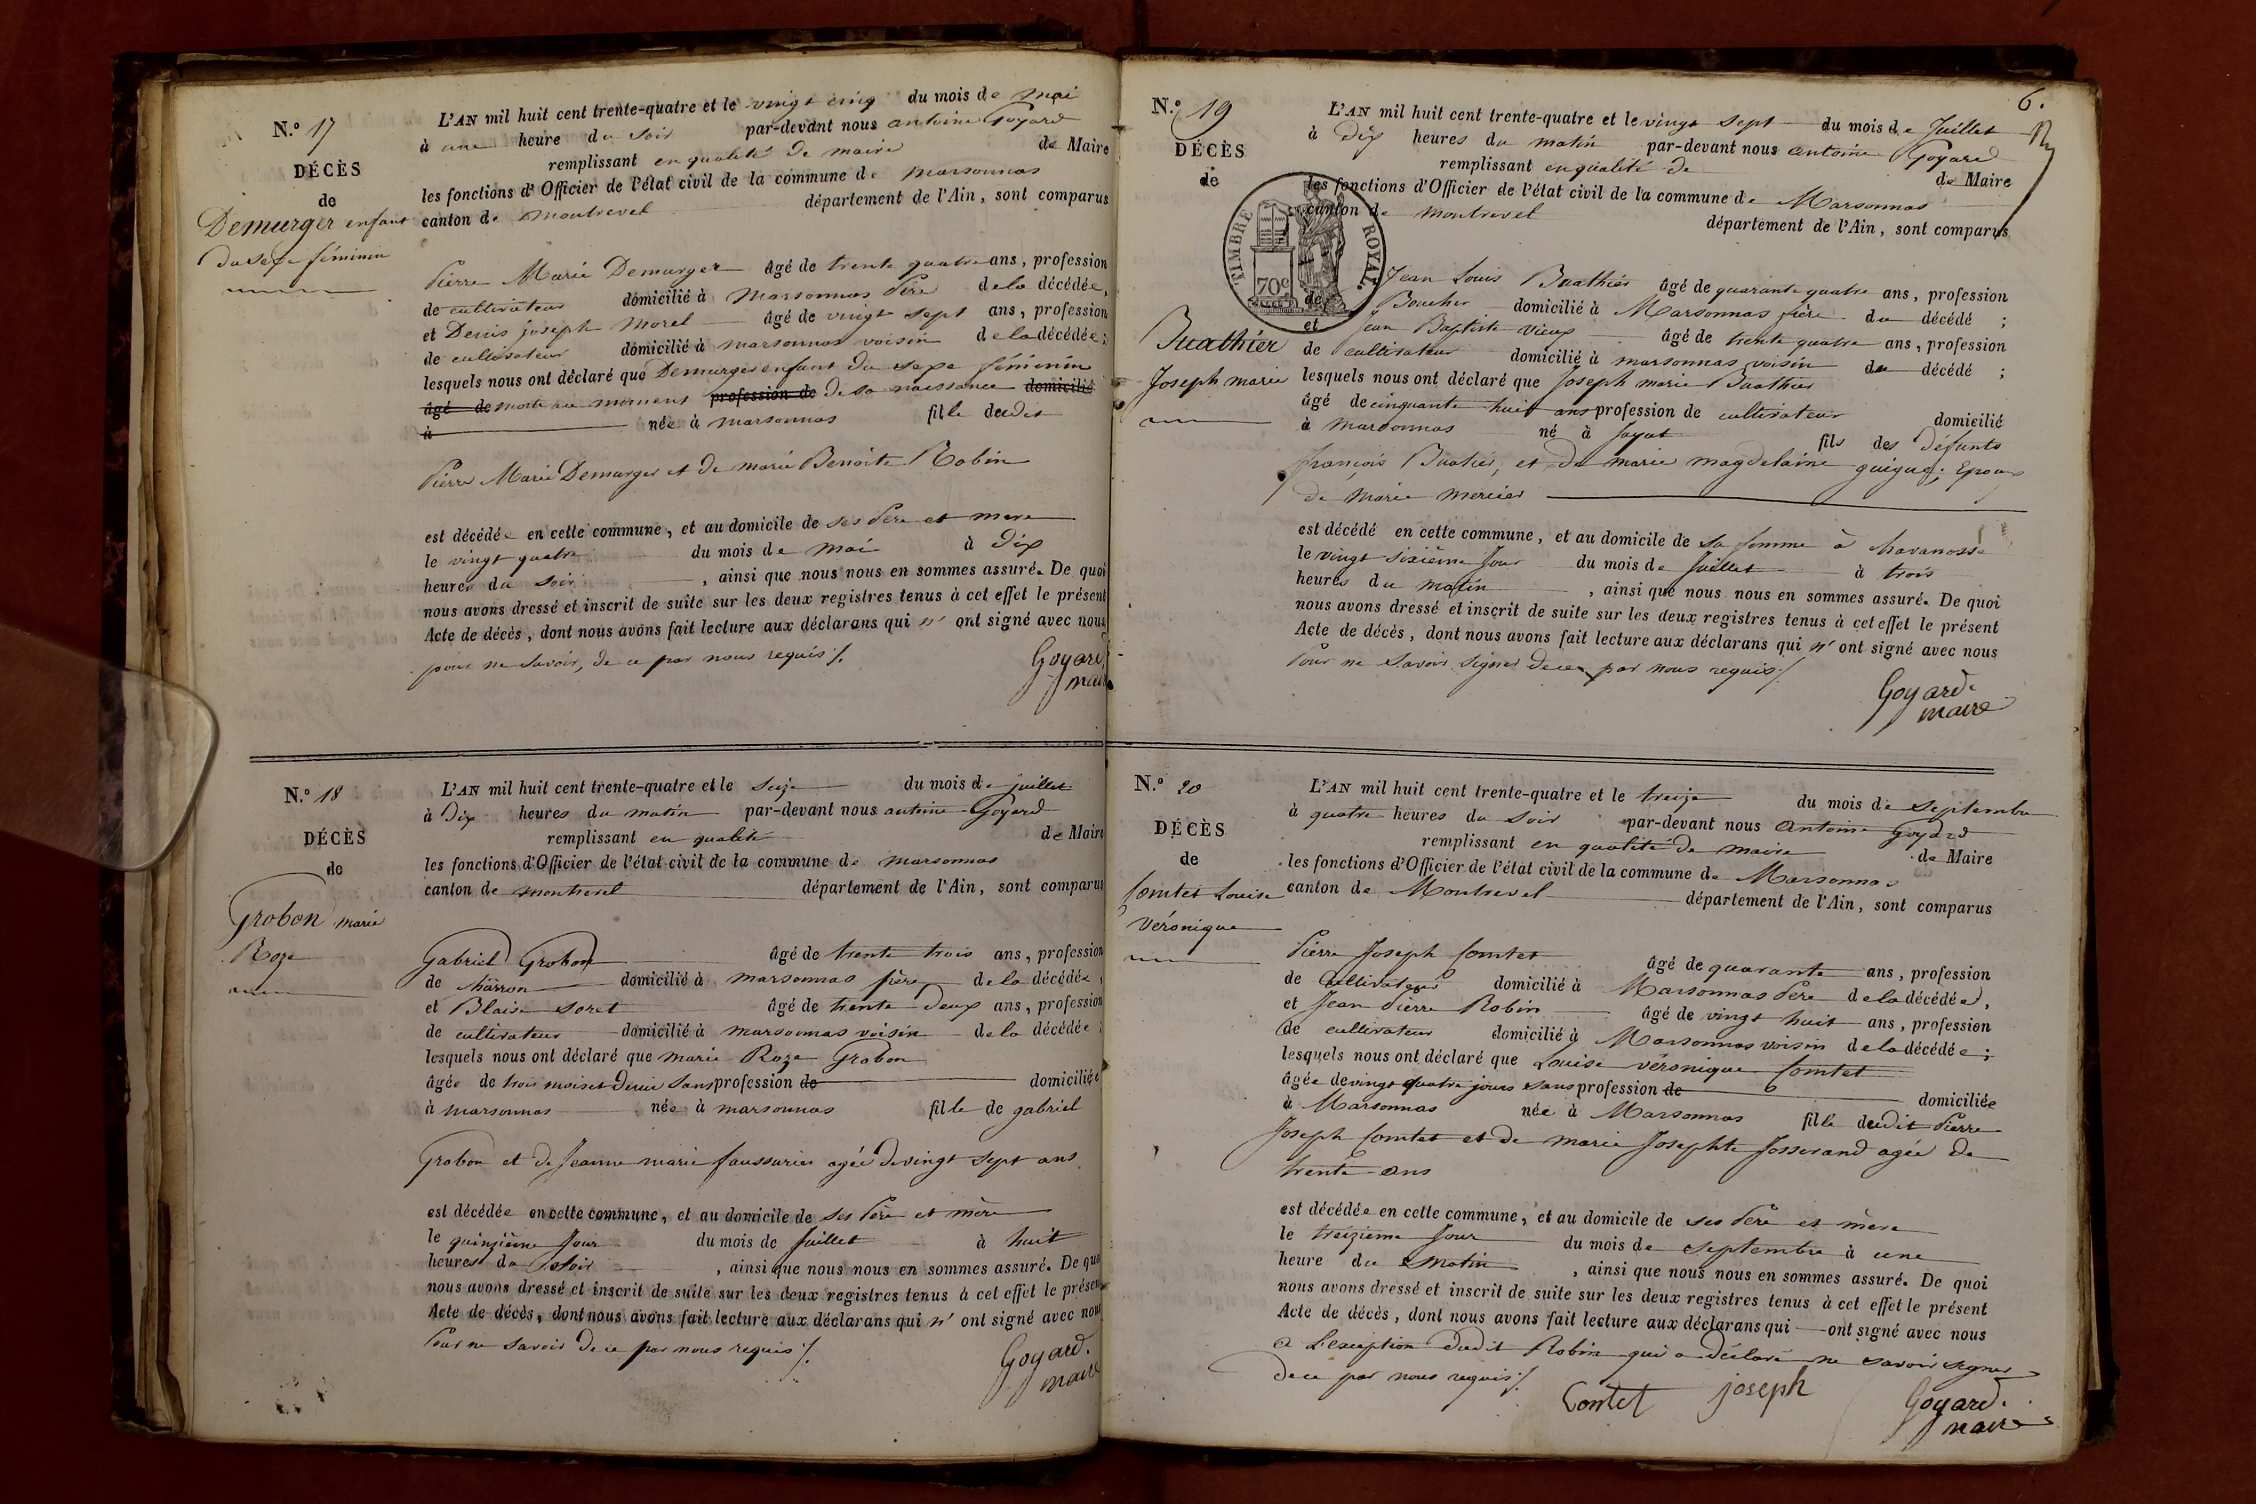 N.º 17
DÉCÈS
de
Demurger enfant
du sexe féminin
L'AN mil huit cent trente-quatre et le vingt cinq du mois de mai
à une heure du soir par-devant nous antoine Goyard
remplissant en qualité de maire de Maire
les fonctions d'Officier de l'état civil de la commune de marsonnas
canton de montrevel département de l'Ain, sont comparus
Pierre Marie Demurger âgé de trente quatre ans, profession
de cultivateur domicilié à marsonnas Père de la décédée,
et Denis joseph Morel âgé de vingt sept ans, profession
de cultivateur domicilié à marsonnas voisin de la décédée;
lesquels nous ont déclaré que Demurger enfant du sexe féminin
âgé de morte au moment profession de de sa naissance domicilié
à née à marsonnas fille dudit
Pierre Marie Demurger et de marie Benoite Robin
est décédée en cette commune, et au domicile de ses Père et mere
le vingt quatre du mois de mai à dix
heures du soir, ainsi que nous nous en sommes assuré. De quoi
nous avons dressé et inscrit de suite sur les deux registres tenus à cet effet le présent
Acte de décès, dont nous avons fait lecture aux déclarans qui n'ont signé avec nous
pour ne savoir, de ce par nous requis ⁒.
Goyard
maire
N.º 18
DÉCÈS
de
Grobon marie
Roze
L'AN mil huit cent trente-quatre et le seize du mois de juillet
à dix heures du matin par-devant nous antoine Goyard
remplissant en qualité de Maire
les fonctions d'Officier de l'état civil de la commune de marsonnas
canton de montrevel département de l'Ain, sont comparus
Gabriel Grobon âgé de trente trois ans, profession
de charron domicilié à marsonnas père de la décédée,
et Blaise Soret âgé de trente deux ans, profession
de cultivateur domicilié à marsonnas voisin de la décédée;
lesquels nous ont déclaré que marie Roze Grobon
âgée de trois mois et demie sans profession de domiciliée
à marsonnas née à marsonnas fille de gabriel
Grobon et de Jeanne marie faussurier agée de vingt sept ans
est décédée en cette commune, et au domicile de ses Père et mère
le quinzième Jour du mois de Juillet à huit
heures du soir, ainsi que nous nous en sommes assuré. De quoi
nous avons dressé et inscrit de suite sur les deux registres tenus à cet effet le présent
Acte de décès, dont nous avons fait lecture aux déclarans qui n'ont signé avec nous
Pour ne savoir de ce par nous requis ⁒.
Goyard.
maire
6.
N.º 19
DÉCÈS
de
TIMBRE ROYAL.
70c
Buathier
Joseph marie
L'AN mil huit cent trente-quatre et le vingt sept du mois de Juillet
à Dix heures du matin par-devant nous antoine Goyard
remplissant en qualité de de Maire
les fonctions d'Officier de l'état civil de la commune de Marsonnas
canton de montrevel département de l'Ain, sont comparus
Jean Louis Buathier âgé de quarante quatre ans, profession
de Boucher domicilié à Marsonnas frère du décédé;
et Jean Baptiste vieux âgé de trente quatre ans, profession
de cultivateur domicilié à marsonnas voisin du décédé;
lesquels nous ont déclaré que Joseph marie Buathier
âgé de cinquante huit ans profession de cultivateur domicilié
à marsonnas né à Jayat fils des défunts
françois Buatier, et de marie magdelaine guigue; Epoux
de marie mercier
est décédé en cette commune, et au domicile de sa femme à Chavanosse
le vingt sixième Jour du mois de Juillet à trois
heures du matin, ainsi que nous nous en sommes assuré. De quoi
nous avons dressé et inscrit de suite sur les deux registres tenus à cet effet le présent
Acte de décès, dont nous avons fait lecture aux déclarans qui n'ont signé avec nous
Pour ne savoir signer de ce par nous requis ⁒.
Goyard.
maire
N.º 20
DÉCÈS
de
Comtet Louise
Véronique
L'AN mil huit cent trente-quatre et le treize du mois de septembre
à quatre heures du soir par-devant nous Antoine Goyard
remplissant en qualité de maire de Maire
les fonctions d'Officier de l'état civil de la commune de Marsonnas
canton de Montrevel département de l'Ain, sont comparus
Pierre Joseph Comtet âgé de quarante ans, profession
de Cultivateur domicilié à Marsonnas Pere de la décédée,
et Jean Pierre Robin âgé de vingt huit ans, profession
de cultivateur domicilié à Marsonnas voisin de la décédée;
lesquels nous ont déclaré que Louise véronique Comtet
âgée de vingt quatre jours sans profession de domiciliée
à Marsonnas née à Marsonnas fille dudit Pierre
Joseph Comtet et de marie Josephte Josserand agée de
trente ans
est décédée en cette commune, et au domicile de ses Père et mère
le treizième Jour du mois de septembre à une
heure du matin, ainsi que nous nous en sommes assuré. De quoi
nous avons dressé et inscrit de suite sur les deux registres tenus à cet effet le présent
Acte de décès, dont nous avons fait lecture aux déclarans qui ont signé avec nous
à l'exception dudit Robin qui a déclaré ne savoir signer
de ce par nous requis ⁒.
Comtet joseph
Goyard.
maire